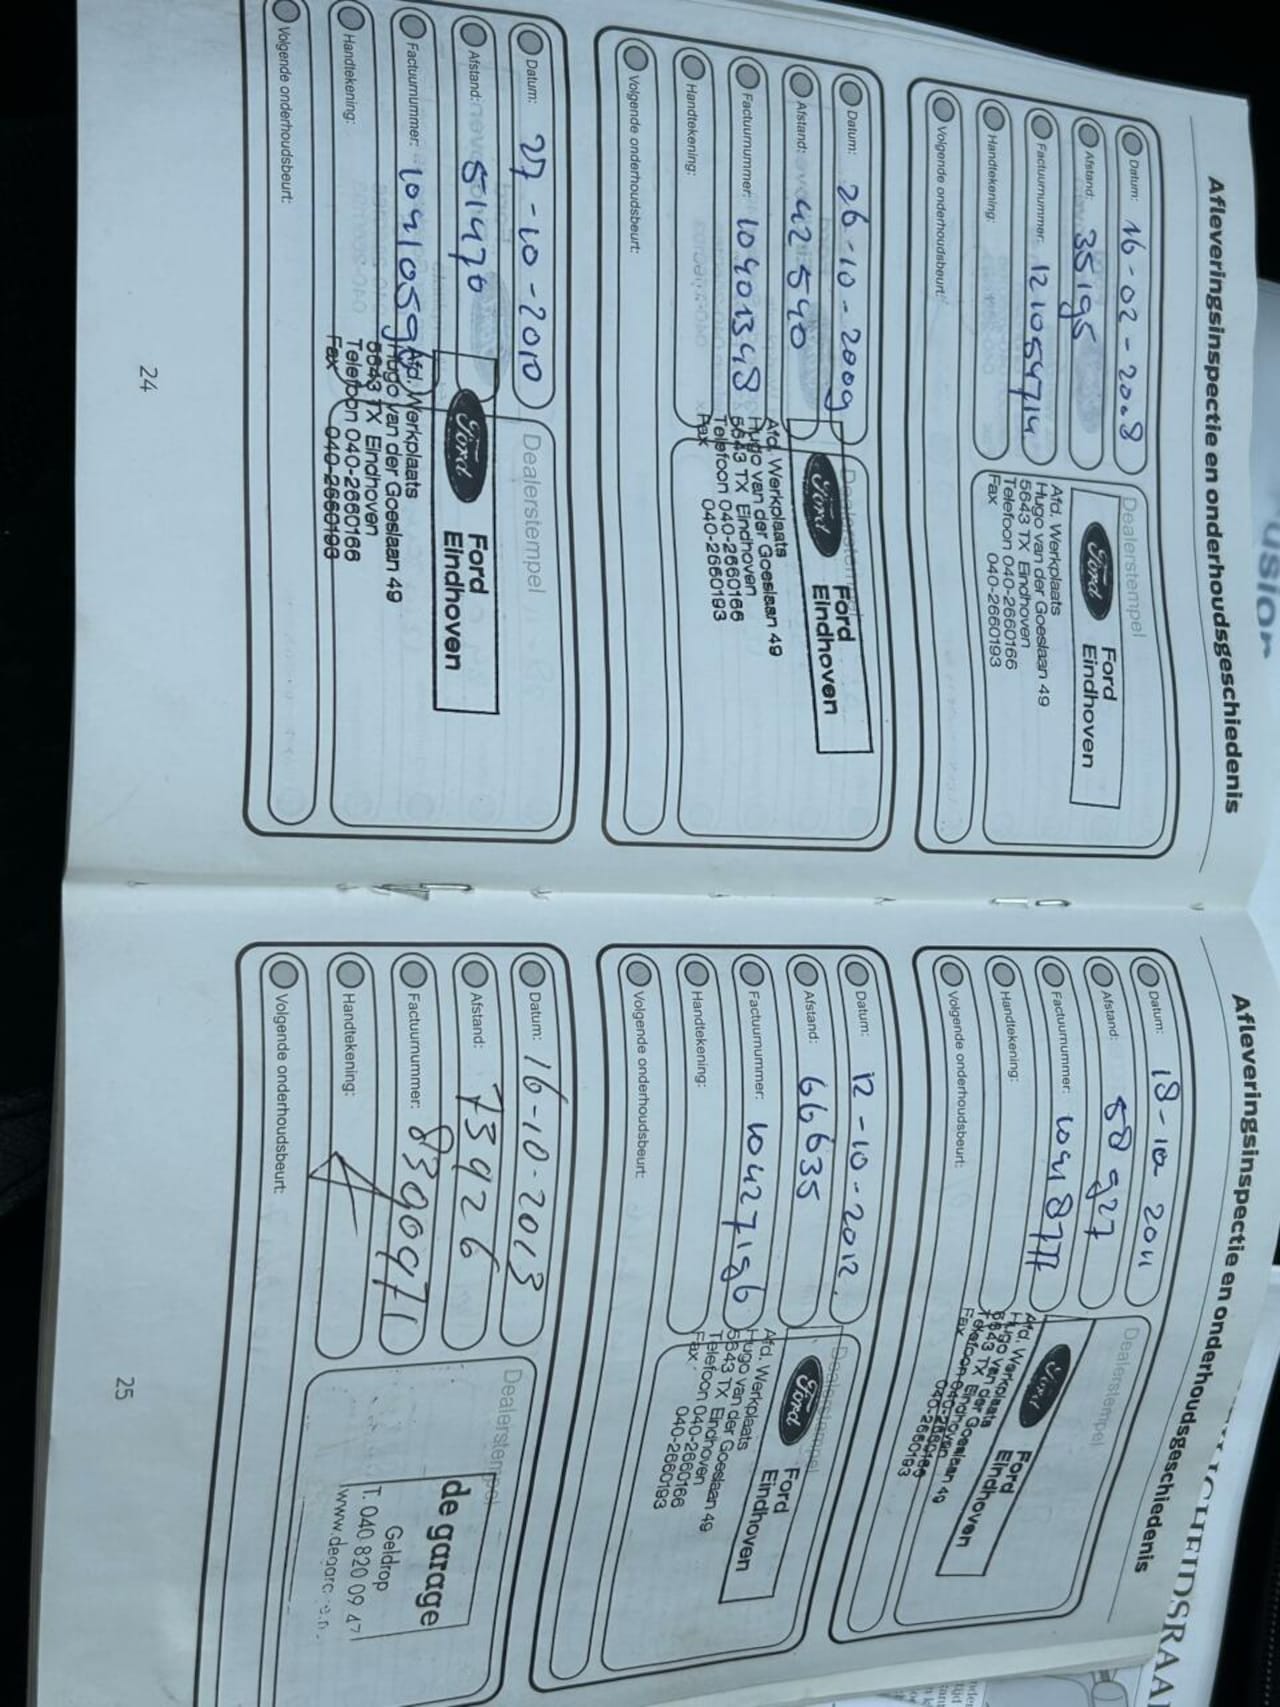 Afleveringsinspectie en onderhoudsgeschiedenis
Datum: 16-02-2008
Afstand: 35195
Factuurnummer: 121059714
Handtekening:
Volgende onderhoudsbeurt:
Dealerstempel
Ford
Ford
Eindhoven
Afd. Werkplaats
Hugo van der Goeslaan 49
5643 TX Eindhoven
Telefoon 040-2660166
Fax 040-2660193
Datum: 26-10-2009
Afstand: 42540
Factuurnummer: 10401348
Handtekening:
Volgende onderhoudsbeurt:
Dealerstempel
Ford
Ford
Eindhoven
Afd. Werkplaats
Hugo van der Goeslaan 49
5643 TX Eindhoven
Telefoon 040-2660166
Fax 040-2660193
Datum: 27-10-2010
Afstand: 51470
Factuurnummer:
Handtekening:
Volgende onderhoudsbeurt:
Dealerstempel
Ford
Ford
Eindhoven
Afd. Werkplaats
Hugo van der Goeslaan 49
5643 TX Eindhoven
Telefoon 040-2660166
Fax 040-2660193
24
Afleveringsinspectie en onderhoudsgeschiedenis
Datum: 18-10-2011
Afstand: 58927
Factuurnummer: 10418777
Handtekening:
Volgende onderhoudsbeurt:
Dealerstempel
Ford
Ford
Eindhoven
Afd. Werkplaats
Hugo van der Goeslaan 49
5643 TX Eindhoven
Telefoon 040-2660166
Fax 040-2660193
Datum: 12-10-2012
Afstand: 66635
Factuurnummer: 10427196
Handtekening:
Volgende onderhoudsbeurt:
Dealerstempel
Ford
Ford
Eindhoven
Afd. Werkplaats
Hugo van der Goeslaan 49
5643 TX Eindhoven
Telefoon 040-2660166
Fax 040-2660193
Datum: 16-10-2013
Afstand: 73926
Factuurnummer: 83900971
Handtekening:
Volgende onderhoudsbeurt:
Dealerstempel
de garage
Geldrop
T. 040 820 09 47
25